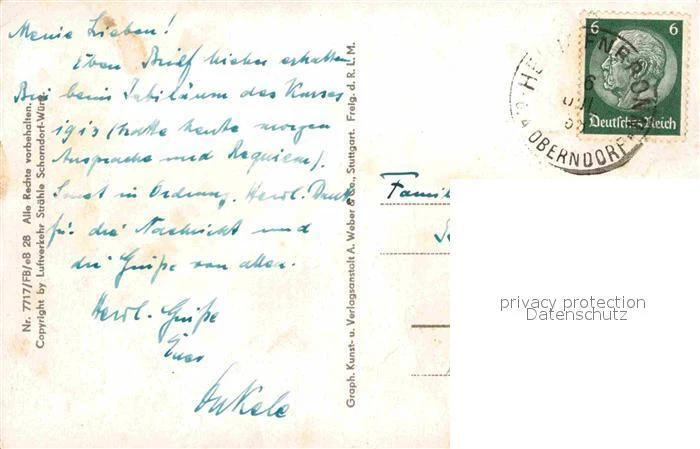 Meine Lieben!
Eben Brief hieher erhalten.
Bin beim Jubiläum des Kurses
1913 (hatte heute morgen
Ansprache und Requiem).
Sonst in Ordnung. Herzl. Dank
für die Nachricht und
die Grüße von allen.
Herzl. Grüße
Euer
Onkele
Nr. 7717/FB/eB 28 Alle Rechte vorbehalten.
Copyright by Luftverkehr Strähle Schorndorf-Würt.
Graph. Kunst- u. Verlagsanstalt A. Weber & Co., Stuttgart. Freig. d. R. L. M.
6 6
Deutsches Reich
OBERNDORF
Famil
privacy protection
Datenschutz